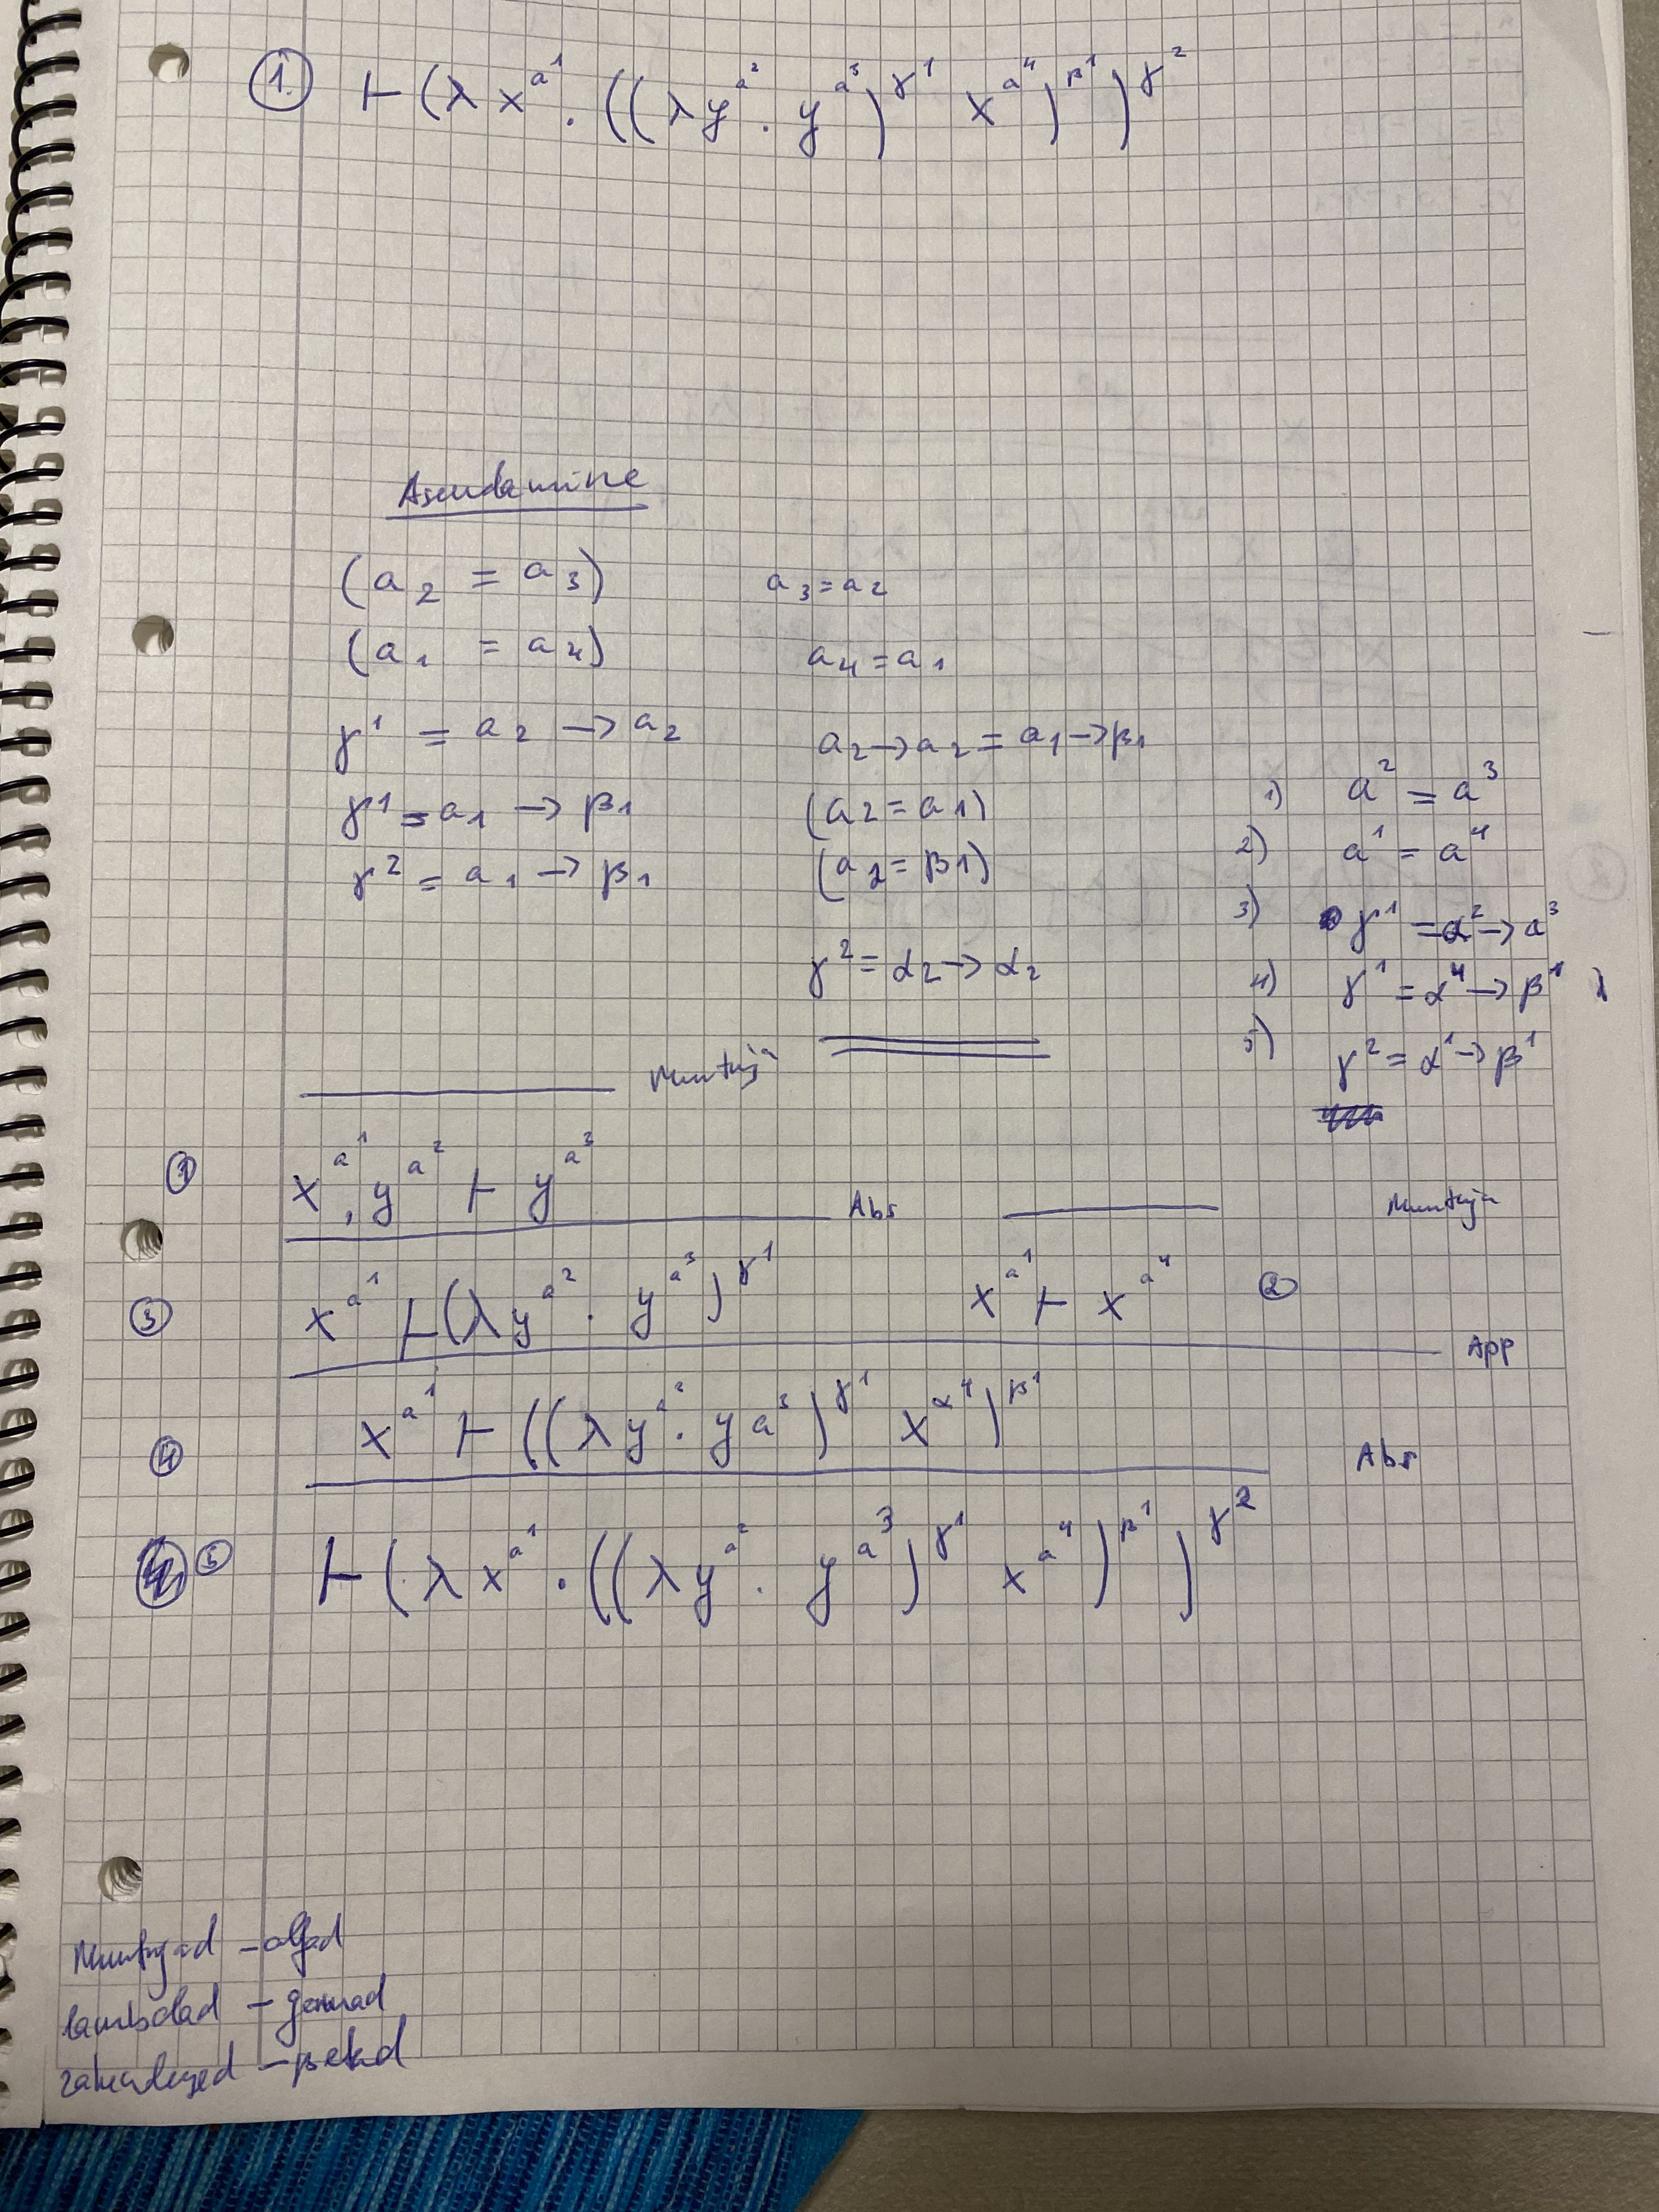 1. ⊢ (λ x^a^1 . ((λ y^a^2 . y^a^3)^γ^1 x^a^4)^β^1)^γ^2
Asendamine
(a2 = a3) a3 = a2
(a1 = a4) a4 = a1
γ^1 = a2 → a2 a2 → a2 = a1 → β1
γ^1 = a1 → β1 (a2 = a1)
γ^2 = a1 → β1 (a2 = β1)
γ^2 = α2 → α2
1) a^2 = a^3
2) a^1 = a^4
3) γ^1 = α^2 → a^3
4) γ^1 = α^4 → β^1
5) γ^2 = α^1 → β^1
Muutuja
① x^a^1, y^a^2 ⊢ y^a^3
Abs Muutuja
③ x^a^1 ⊢ (λ y^a^2 . y^a^3)^γ^1 x^a^1 ⊢ x^a^4 ②
App
④ x^a^1 ⊢ ((λ y^a^2 . y a^3)^γ^1 x^α^4)^β^1
Abs
⑤ ⊢ (λ x^a^1 . ((λ y^a^2 . y^a^3)^γ^1 x^a^4)^β^1)^γ^2
Muutujad - alfad
lambdad - gammad
rakendused - beetad